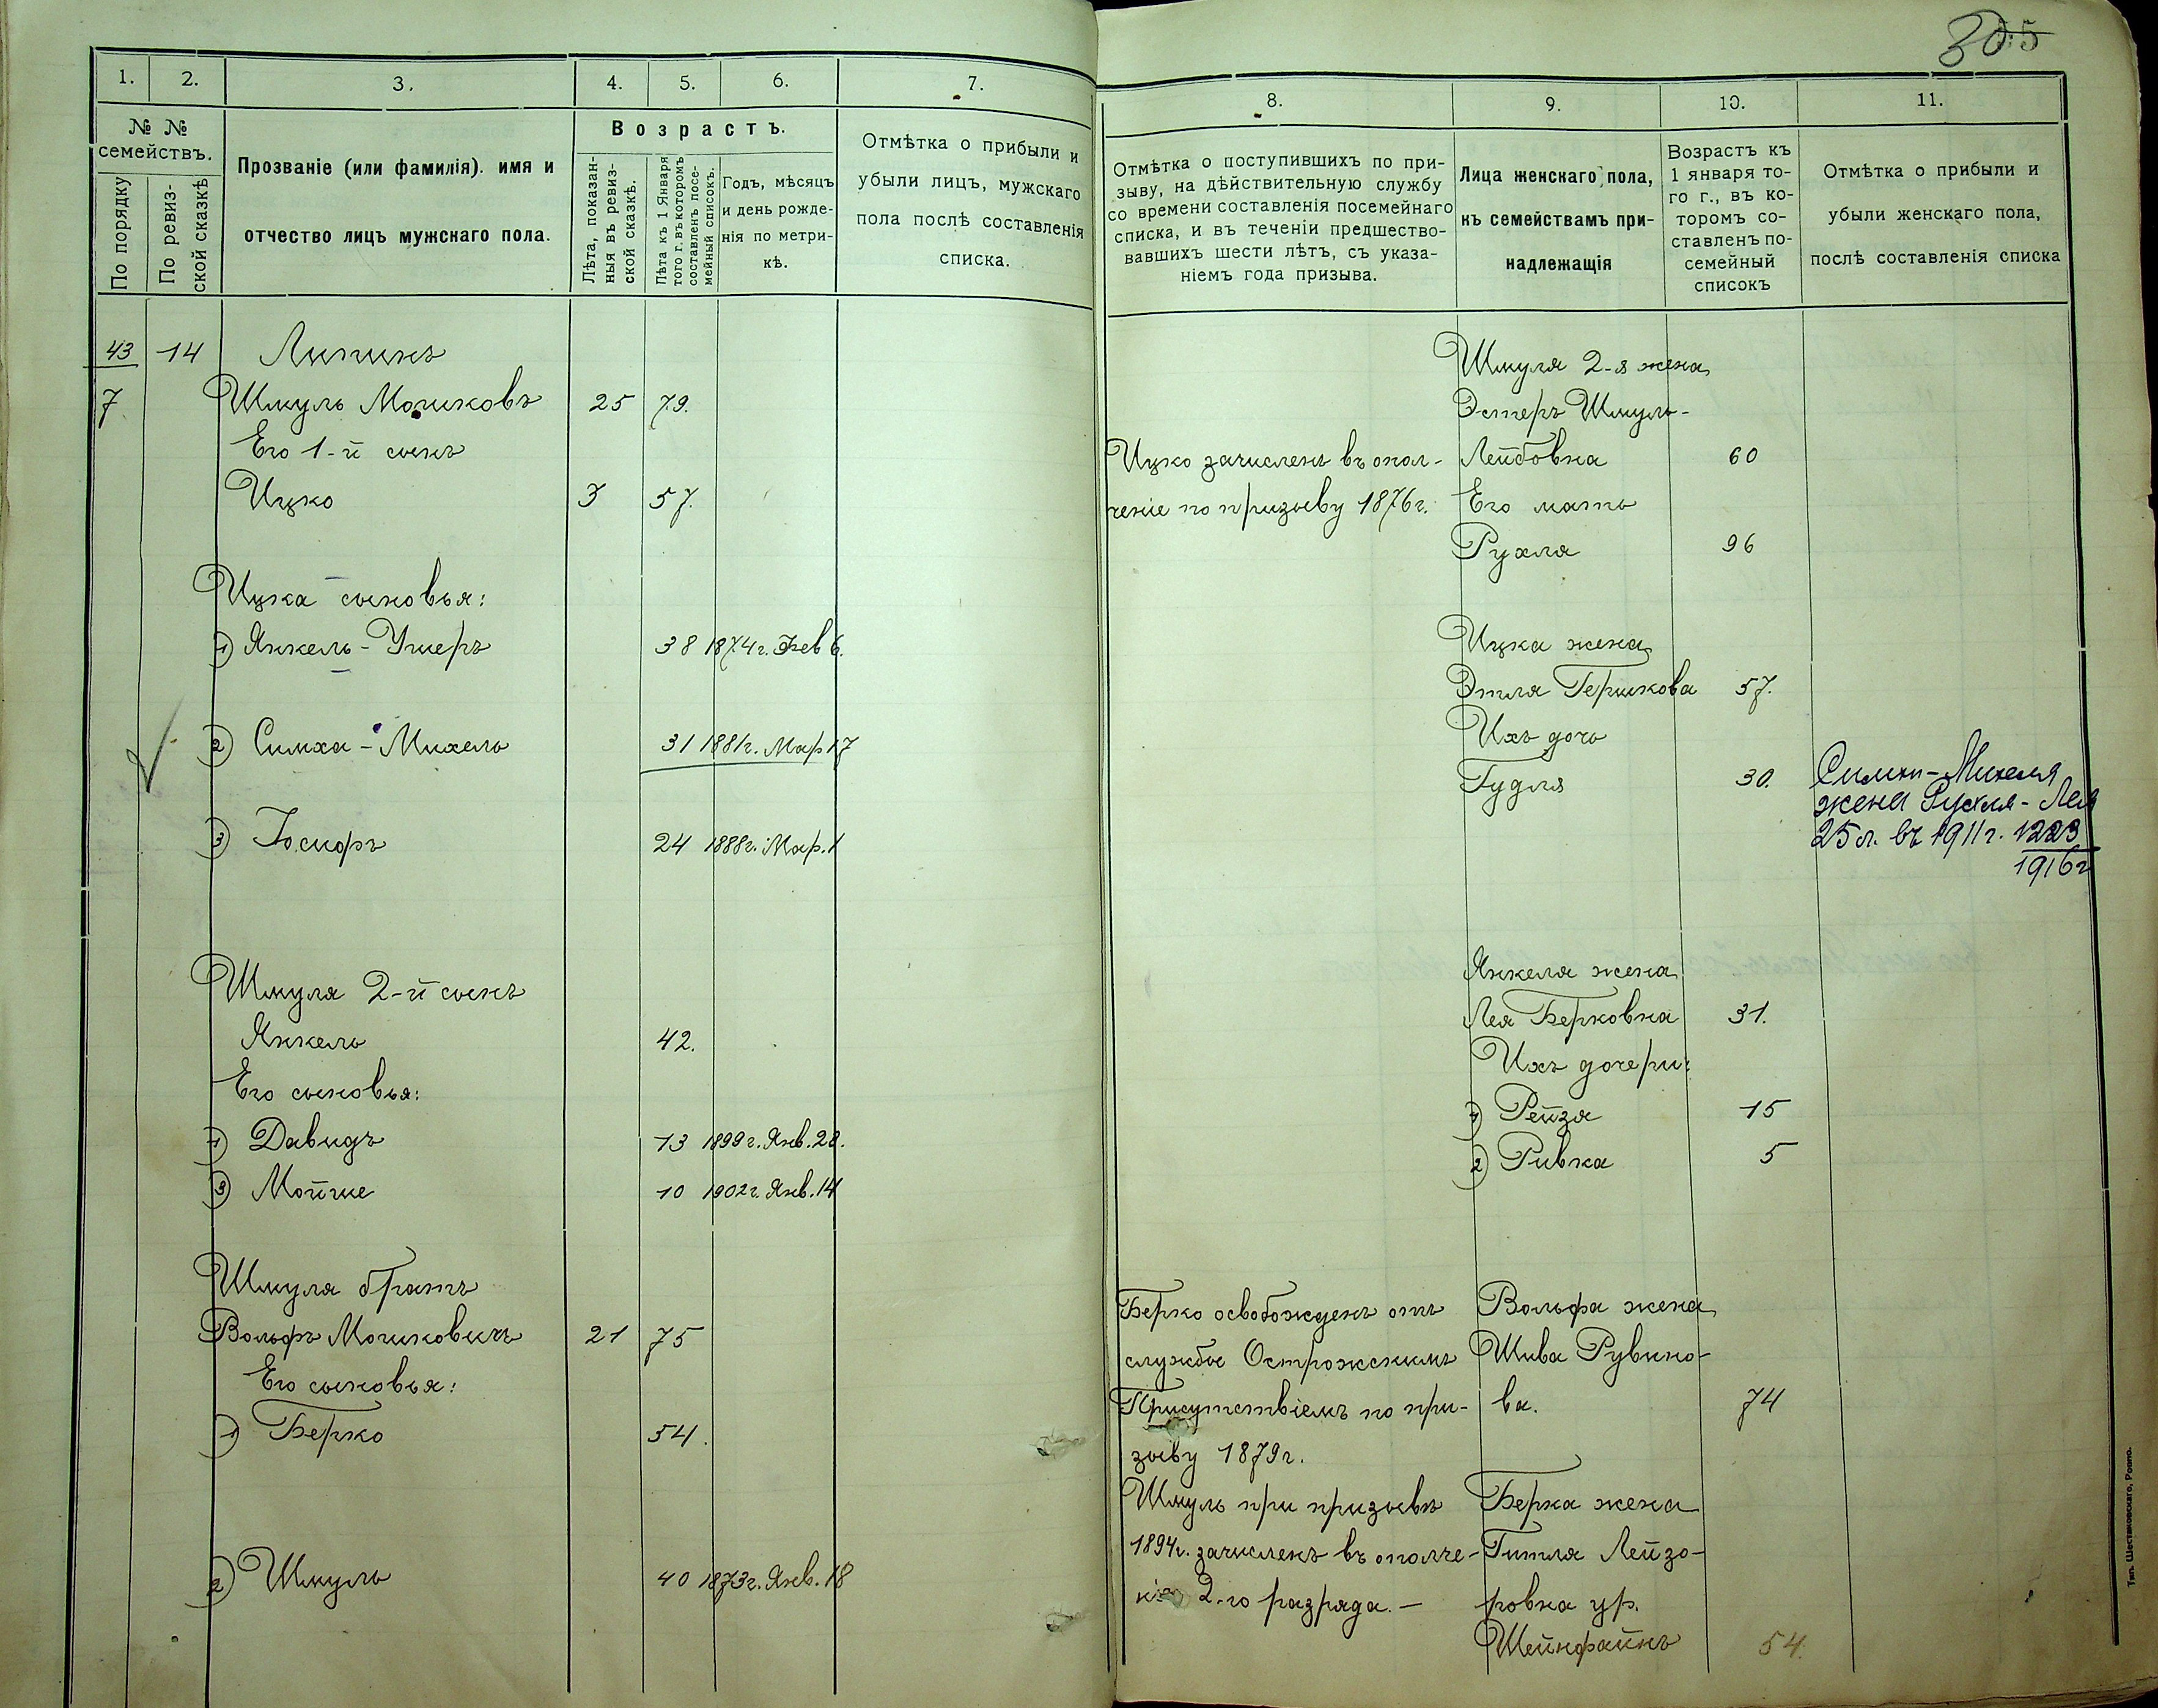 305
1.
2.
3.
4.
5.
6.
7.
8.
9.
10.
11.
№ №
семействъ.
По порядку
По ревиз-
ской сказкѣ
Прозваніе (или фамилія). имя и
отчество лицъ мужскаго пола.
Возрастъ.
Лѣта, показан-
ныя въ ревиз-
ской сказкѣ.
Лѣта къ 1 Января
того г. въ которомъ
составленъ посе-
мейный списокъ.
Годъ, мѣсяцъ
и день рожде-
нія по метри-
кѣ.
Отмѣтка о прибыли и
убыли лицъ, мужскаго
пола послѣ составленія
списка.
Отмѣтка о поступившихъ по при-
зыву, на дѣйствительную службу
со времени составленія посемейнаго
списка, и въ теченіи предшество-
вавшихъ шести лѣтъ, съ указа-
ніемъ года призыва.
Лица женскаго пола,
къ семействамъ при-
надлежащія
Возрастъ къ
1 января то-
го г., въ ко-
торомъ со-
ставленъ по-
семейный
списокъ
Отмѣтка о прибыли и
убыли женскаго пола,
послѣ составленія списка
43 14 Липинъ
7 Шмуль Мошковъ 25 79.
Его 1-й сынъ
Ицко 3 57.
Ицка сыновья:
1) Янкель-Ушеръ 38 1874г. Фев 6.
2) Симха-Михель 31 1881г. Мар 17
3) Іосифъ 24 1888г. Мар. 1
Шмуля 2-й сынъ
Янкель 42.
Его сыновья:
1) Давидъ 13 1899г. Янв. 28.
3) Мойше 10 1902г. Янв. 14
Шмуля братъ
Вольфъ Мошковичъ 21 75
Его сыновья:
1) Берко 54.
2) Шмуль 40 1873г. Янв. 18
Ицко зачисленъ въ опол-
ченіе по призыву 1876г.
Берко освобожденъ отъ
службы Острожскимъ
Присутствіемъ по при-
зыву 1879г.
Шмуль при призывѣ
1894г. зачисленъ въ ополче-
2-го разряда. —
Шмуля 2-я жена
Эстеръ Шмуль-
Лейбовна 60
Его мать
Рухля 96
Ицка жена
Этля Гершкова 57.
Ихъ дочь
Гудля 30.
Янкеля жена
Лея Берковна 31.
Ихъ дочери:
1) Рейзя 15
2) Ривка 5
Вольфа жена
Шива Рувино-
ва. 74
Берка жена
Гитля Лейзо-
ровна ур.
Шейнфайнъ 54.
Симхи-Михеля
жена Рухля-Лея
25 л. въ 1911г. 1223
1916г
Тип. Шестаковскаго, Ровно.